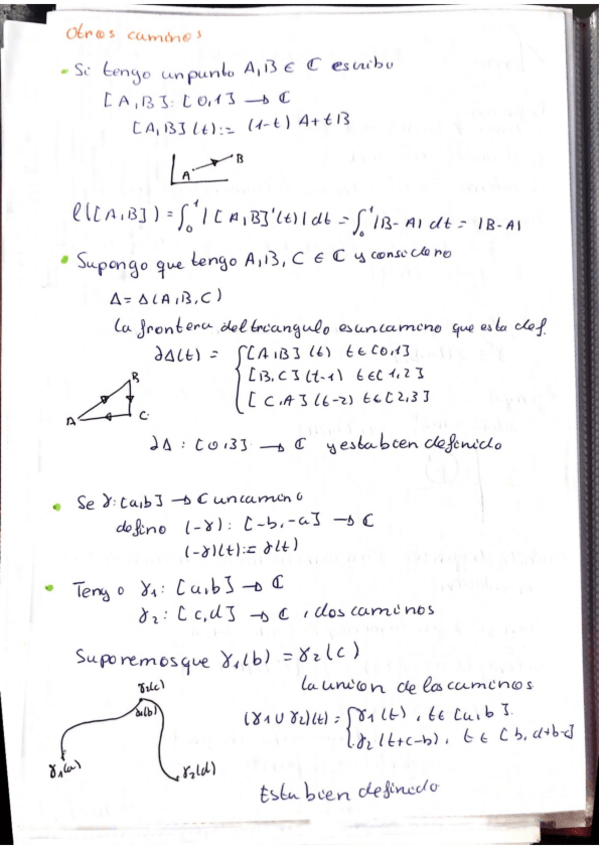 Otros caminos
• Si tengo un punto A,B ∈ ℂ escribo
[A,B]: [0,1] → ℂ
[A,B](t):= (1-t) A+tB
A B
l([A,B]) = ∫₀¹ |[A,B]'(t)| dt = ∫₀¹ |B-A| dt = |B-A|
• Supongo que tengo A,B,C ∈ ℂ y considero
Δ = Δ(A,B,C)
La frontera del triangulo es un camino que esta def.
∂Δ(t) = { [A,B](t) t∈[0,1]
[B,C](t-1) t∈[1,2]
[C,A](t-2) t∈[2,3]
B
A C
∂Δ : [0,3] → ℂ y esta bien definido
• Se γ:[a,b] → ℂ un camino
defino (-γ): [-b,-a] → ℂ
(-γ)(t):= γ(t)
• Tengo γ₁: [a,b] → ℂ
γ₂: [c,d] → ℂ, dos caminos
Suporemos que γ₁(b) = γ₂(c)
la union de los caminos
γ₂(c)
γ₁(b)
(γ₁ ∪ γ₂)(t) = { γ₁(t), t∈[a,b].
γ₂(t+c-b), t∈[b, d+b-c]
γ₁(a) γ₂(d)
Esta bien definido